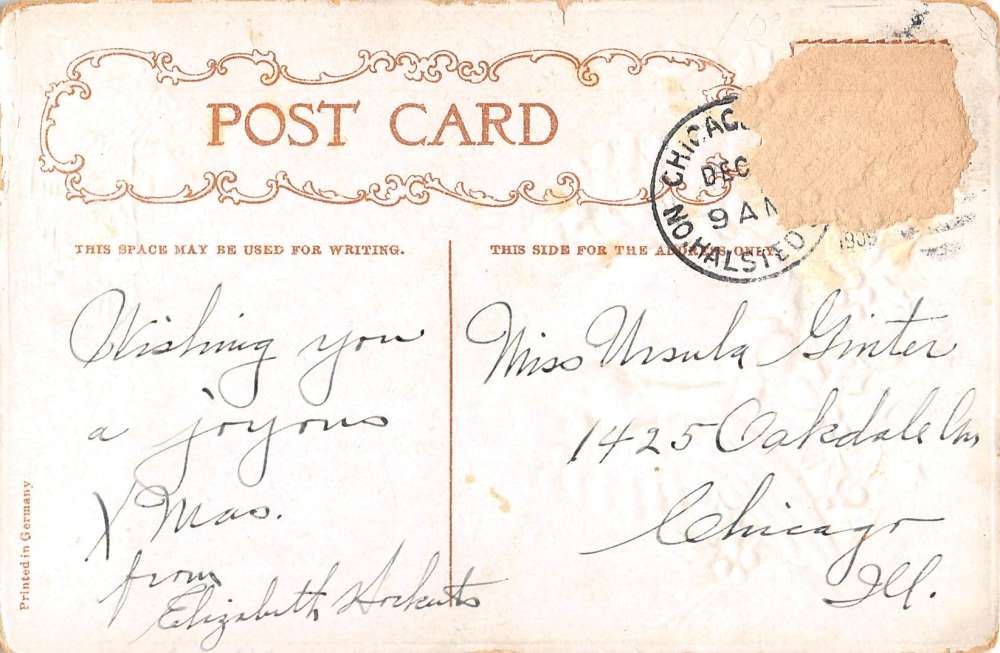 POST CARD
CHICAG
DEC
9 AM
NO. HALSTED
1909
THIS SPACE MAY BE USED FOR WRITING.
THIS SIDE FOR THE ADDRESS ONLY.
Wishing you
a joyous
XMas.
from
Elizabeth
Miss Ursula Ginter
1425 Oakdale Av
Chicago
Ill.
Printed in Germany